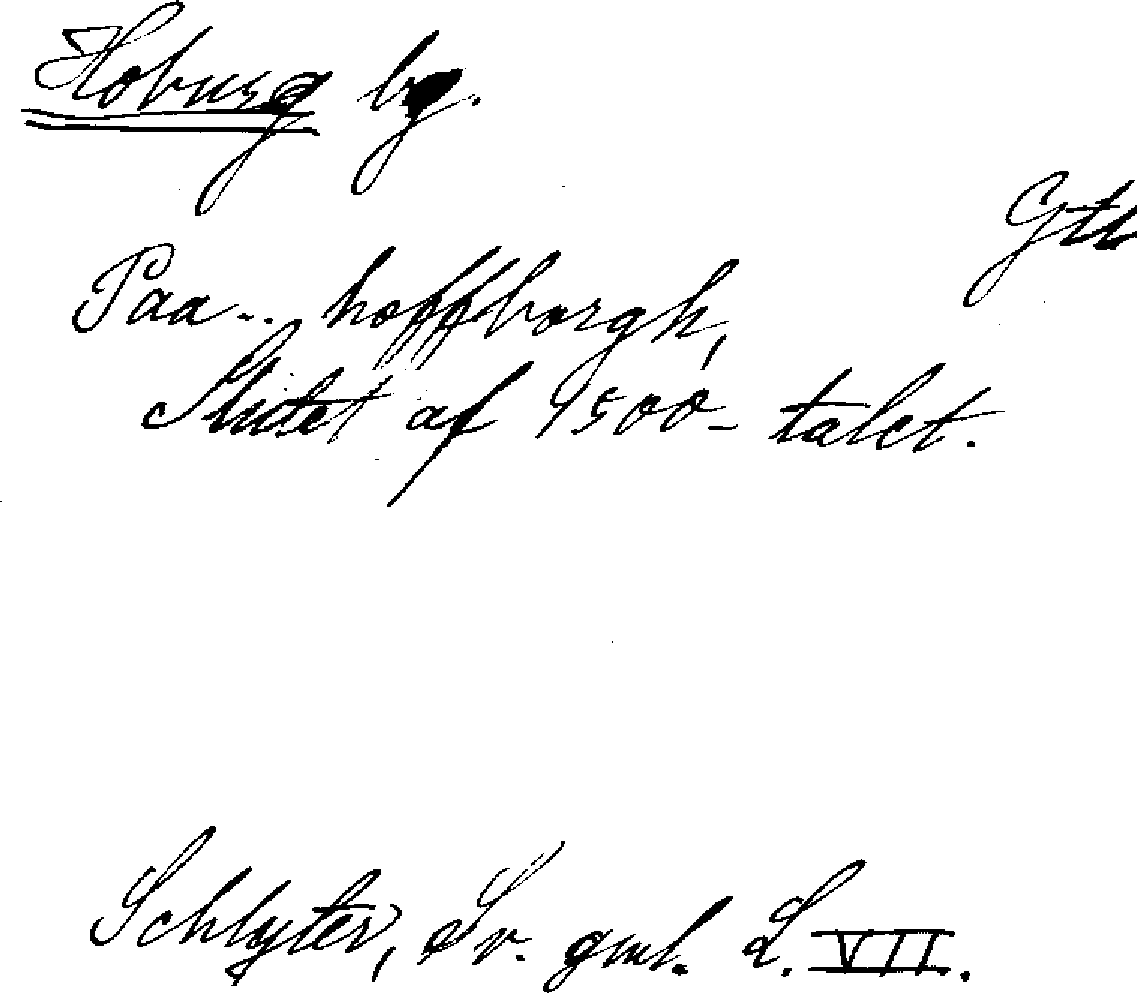 Hoburg bg.
Gtl
Paa... hoffborgh,
Slutet af 1500-talet.
Schlyter, Sv. gml. L. VII.